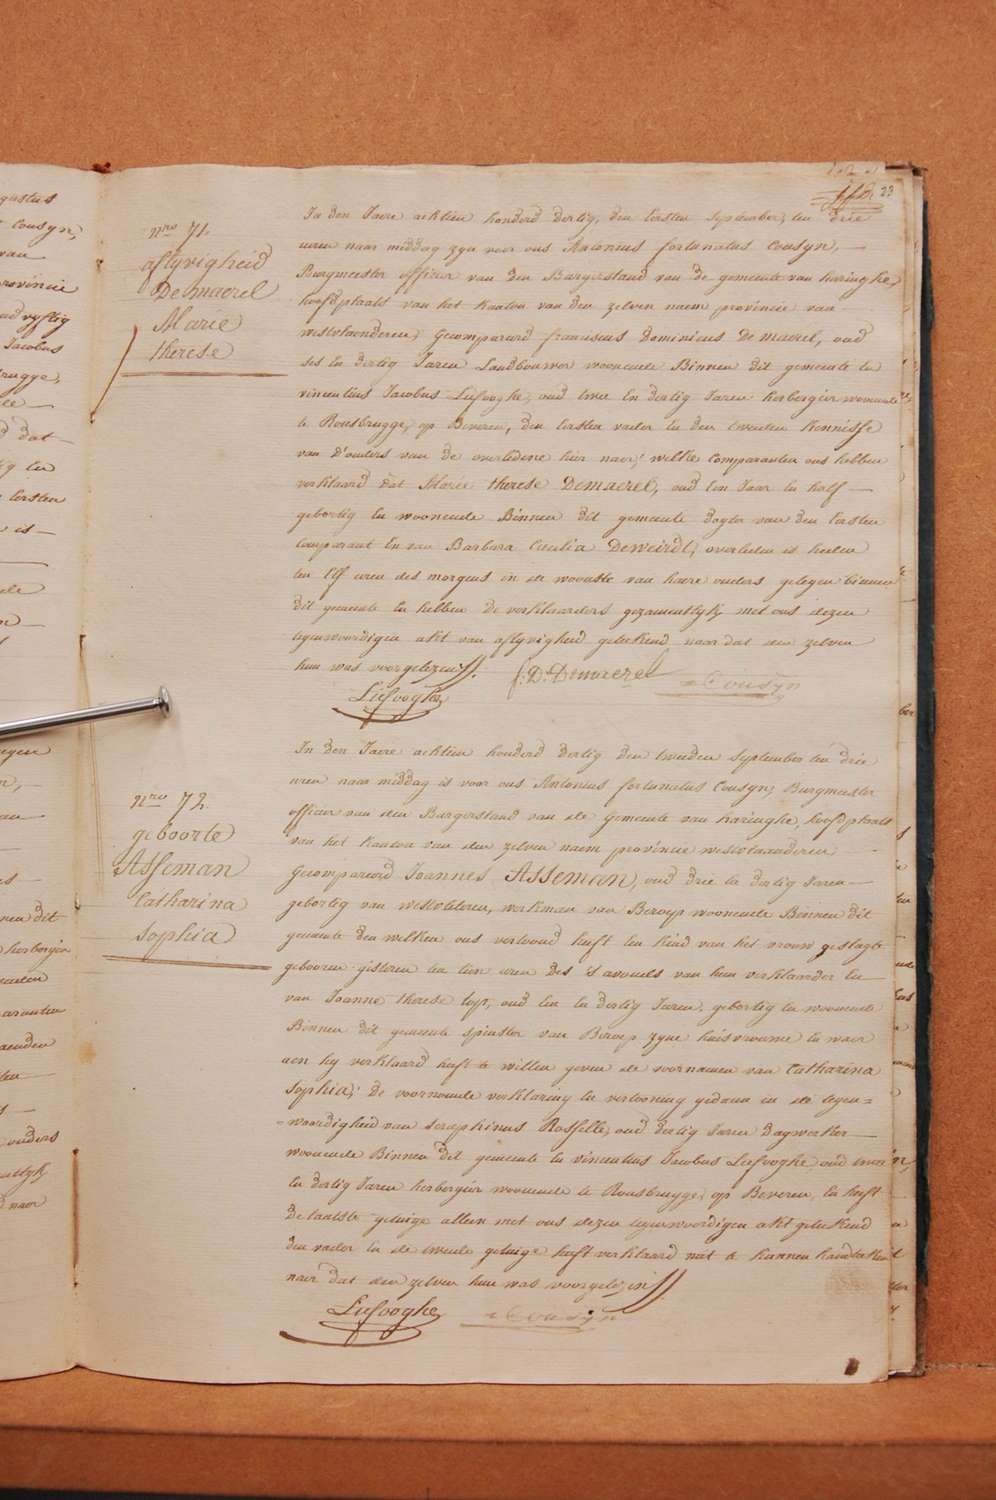 23
nro 71.
aflyvigheid
Demaerel
Marie
therese
In den Jaere achtien honderd dertig, den Eersten September, ten drie
uren naar middag zyn voor ons Antonius fortunatus Cousyn,
Burgmeester officier van den Burgerstand van de gemeente van haringhe,
hoofdplaats van het kanton van den zelven naem provincie van
westvlaenderen, Gecompareerd franciscus Dominicus De maerel, oud
ses en dertig Jaren Landbouwer woonende Binnen dit gemeente en
vincentius Jacobus Lefooghe, oud twee en dertig Jaren herbergier woonende
te Rousbrugge, op Beveren, den Eersten vader en den tweeden Kennisse
van d'ouders van de overledene hier naer; welke comparanten ons hebben
verklaard dat Marie therese Demaerel, oud Een Jaar en half
gebortig en woonende Binnen dit gemeente dogter van den Eersten
Comparant En van Barbara Cecilia Deweirdt, overleden is heden
ten Elf uren des morgens in de woonste van haere ouders gelegen binnen
dit gemeente en hebben de verklaarders gezamentlyk met ons dezen
tegenwoordigen akt van aflyvigheid geteekend naer dat den zelven
hun was voorgelezen
f. D. Demaerel
Cousyn
Lefooghe
nro 72.
geboorte
Asseman
Catharina
Sophia
In den Jaere achtien honderd dertig den tweeden September ten drie
uren naar middag is voor ons Antonius fortunatus Cousyn, Burgmeester
officier van den Burgerstand van de gemeente van haringhe, hoofdplaats
van het kanton van den zelven naem provincie westvlaanderen
Gecompareerd Joannes Asseman, oud drie en dertig Jaren
gebortig van westvleteren, werkman van Beroep woonende Binnen dit
gemeente den welken ons vertoond heeft een kind van het vrouw geslagte
geboren gisteren ten tien uren des 's avonds van hem verklaarder en
van Joanne therese top, oud Een en dertig Jaren gebortig en woonende
Binnen dit gemeente spinster van Beroep zyne huisvrouwe en waer
aen hy verklaard heeft te willen geven de voornamen van Catharina
Sophia; De voornoemde verklaring en vertooning gedaan in de tegen=
=woordigheid van Seraphinus Rosselle, oud dertig Jaren Dagwerker
woonende Binnen dit gemeente en vincentius Jacobus Lefooghe, oud twee
en dertig Jaren herbergier woonende te Rousbrugge, op Beveren, en heeft
De laatste getuige alleen met ons dezen tegenwoordigen akt geteekend
den vader en de tweede getuige heeft verklaard niet te kunnen
naer dat den zelven hun was voorgelezen
Lefooghe
=Cousyn